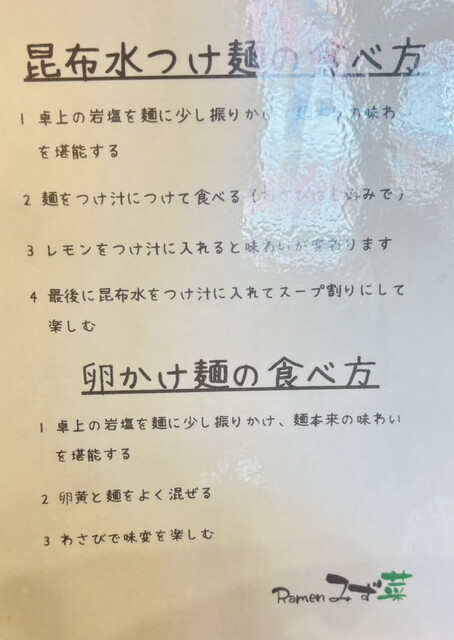 昆布水つけ麺の食べ方
1 卓上の岩塩を麺に少し振りかけ の味わい
を堪能する
2 麺をつけ汁につけて食べる(わさびはお好みで)
3 レモンをつけ汁に入れると味わいが変わります
4 最後に昆布水をつけ汁に入れてスープ割りにして
楽しむ
卵かけ麺の食べ方
1 卓上の岩塩を麺に少し振りかけ、麺本来の味わい
を堪能する
2 卵黄と麺をよく混ぜる
3 わさびで味変を楽しむ
Ramen みず菜